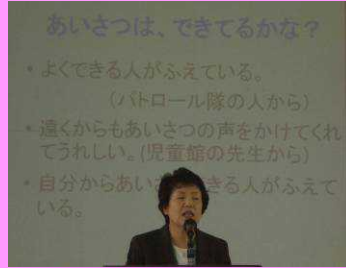 あいさつは、できてるかな？
・よくできる人がふえている。
（パトロール隊の人から）
・遠くからもあいさつの声をかけてくれ
てうれしい。(児童館の先生から)
・自分からあい きる人がふえて
いる。